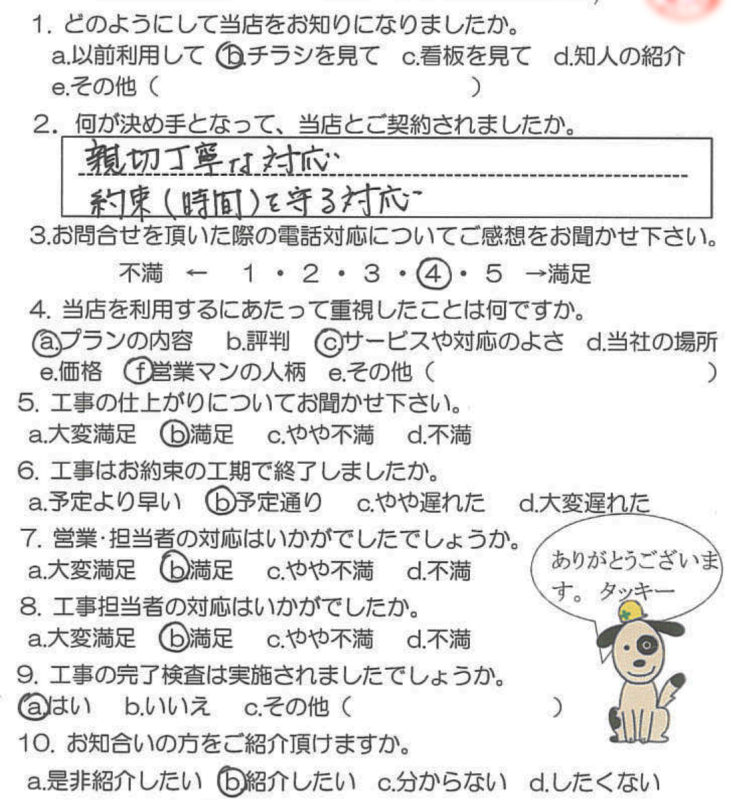 1. どのようにして当店をお知りになりましたか。
a.以前利用して b.チラシを見て c.看板を見て d.知人の紹介
e.その他（ ）
2. 何が決め手となって、当店とご契約されましたか。
親切丁寧な対応
約束(時間)を守る対応
3.お問合せを頂いた際の電話対応についてご感想をお聞かせ下さい。
不満 ← 1・2・3・4・5 →満足
4. 当店を利用するにあたって重視したことは何ですか。
a.プランの内容 b.評判 c.サービスや対応のよさ d.当社の場所
e.価格 f.営業マンの人柄 e.その他（ ）
5. 工事の仕上がりについてお聞かせ下さい。
a.大変満足 b.満足 c.やや不満 d.不満
6. 工事はお約束の工期で終了しましたか。
a.予定より早い b.予定通り c.やや遅れた d.大変遅れた
7. 営業･担当者の対応はいかがでしたでしょうか。
a.大変満足 b.満足 c.やや不満 d.不満
8. 工事担当者の対応はいかがでしたか。
a.大変満足 b.満足 c.やや不満 d.不満
9. 工事の完了検査は実施されましたでしょうか。
a.はい b.いいえ c.その他（ ）
10. お知合いの方をご紹介頂けますか。
a.是非紹介したい b.紹介したい c.分からない d.したくない
ありがとうございま
す。 タッキー